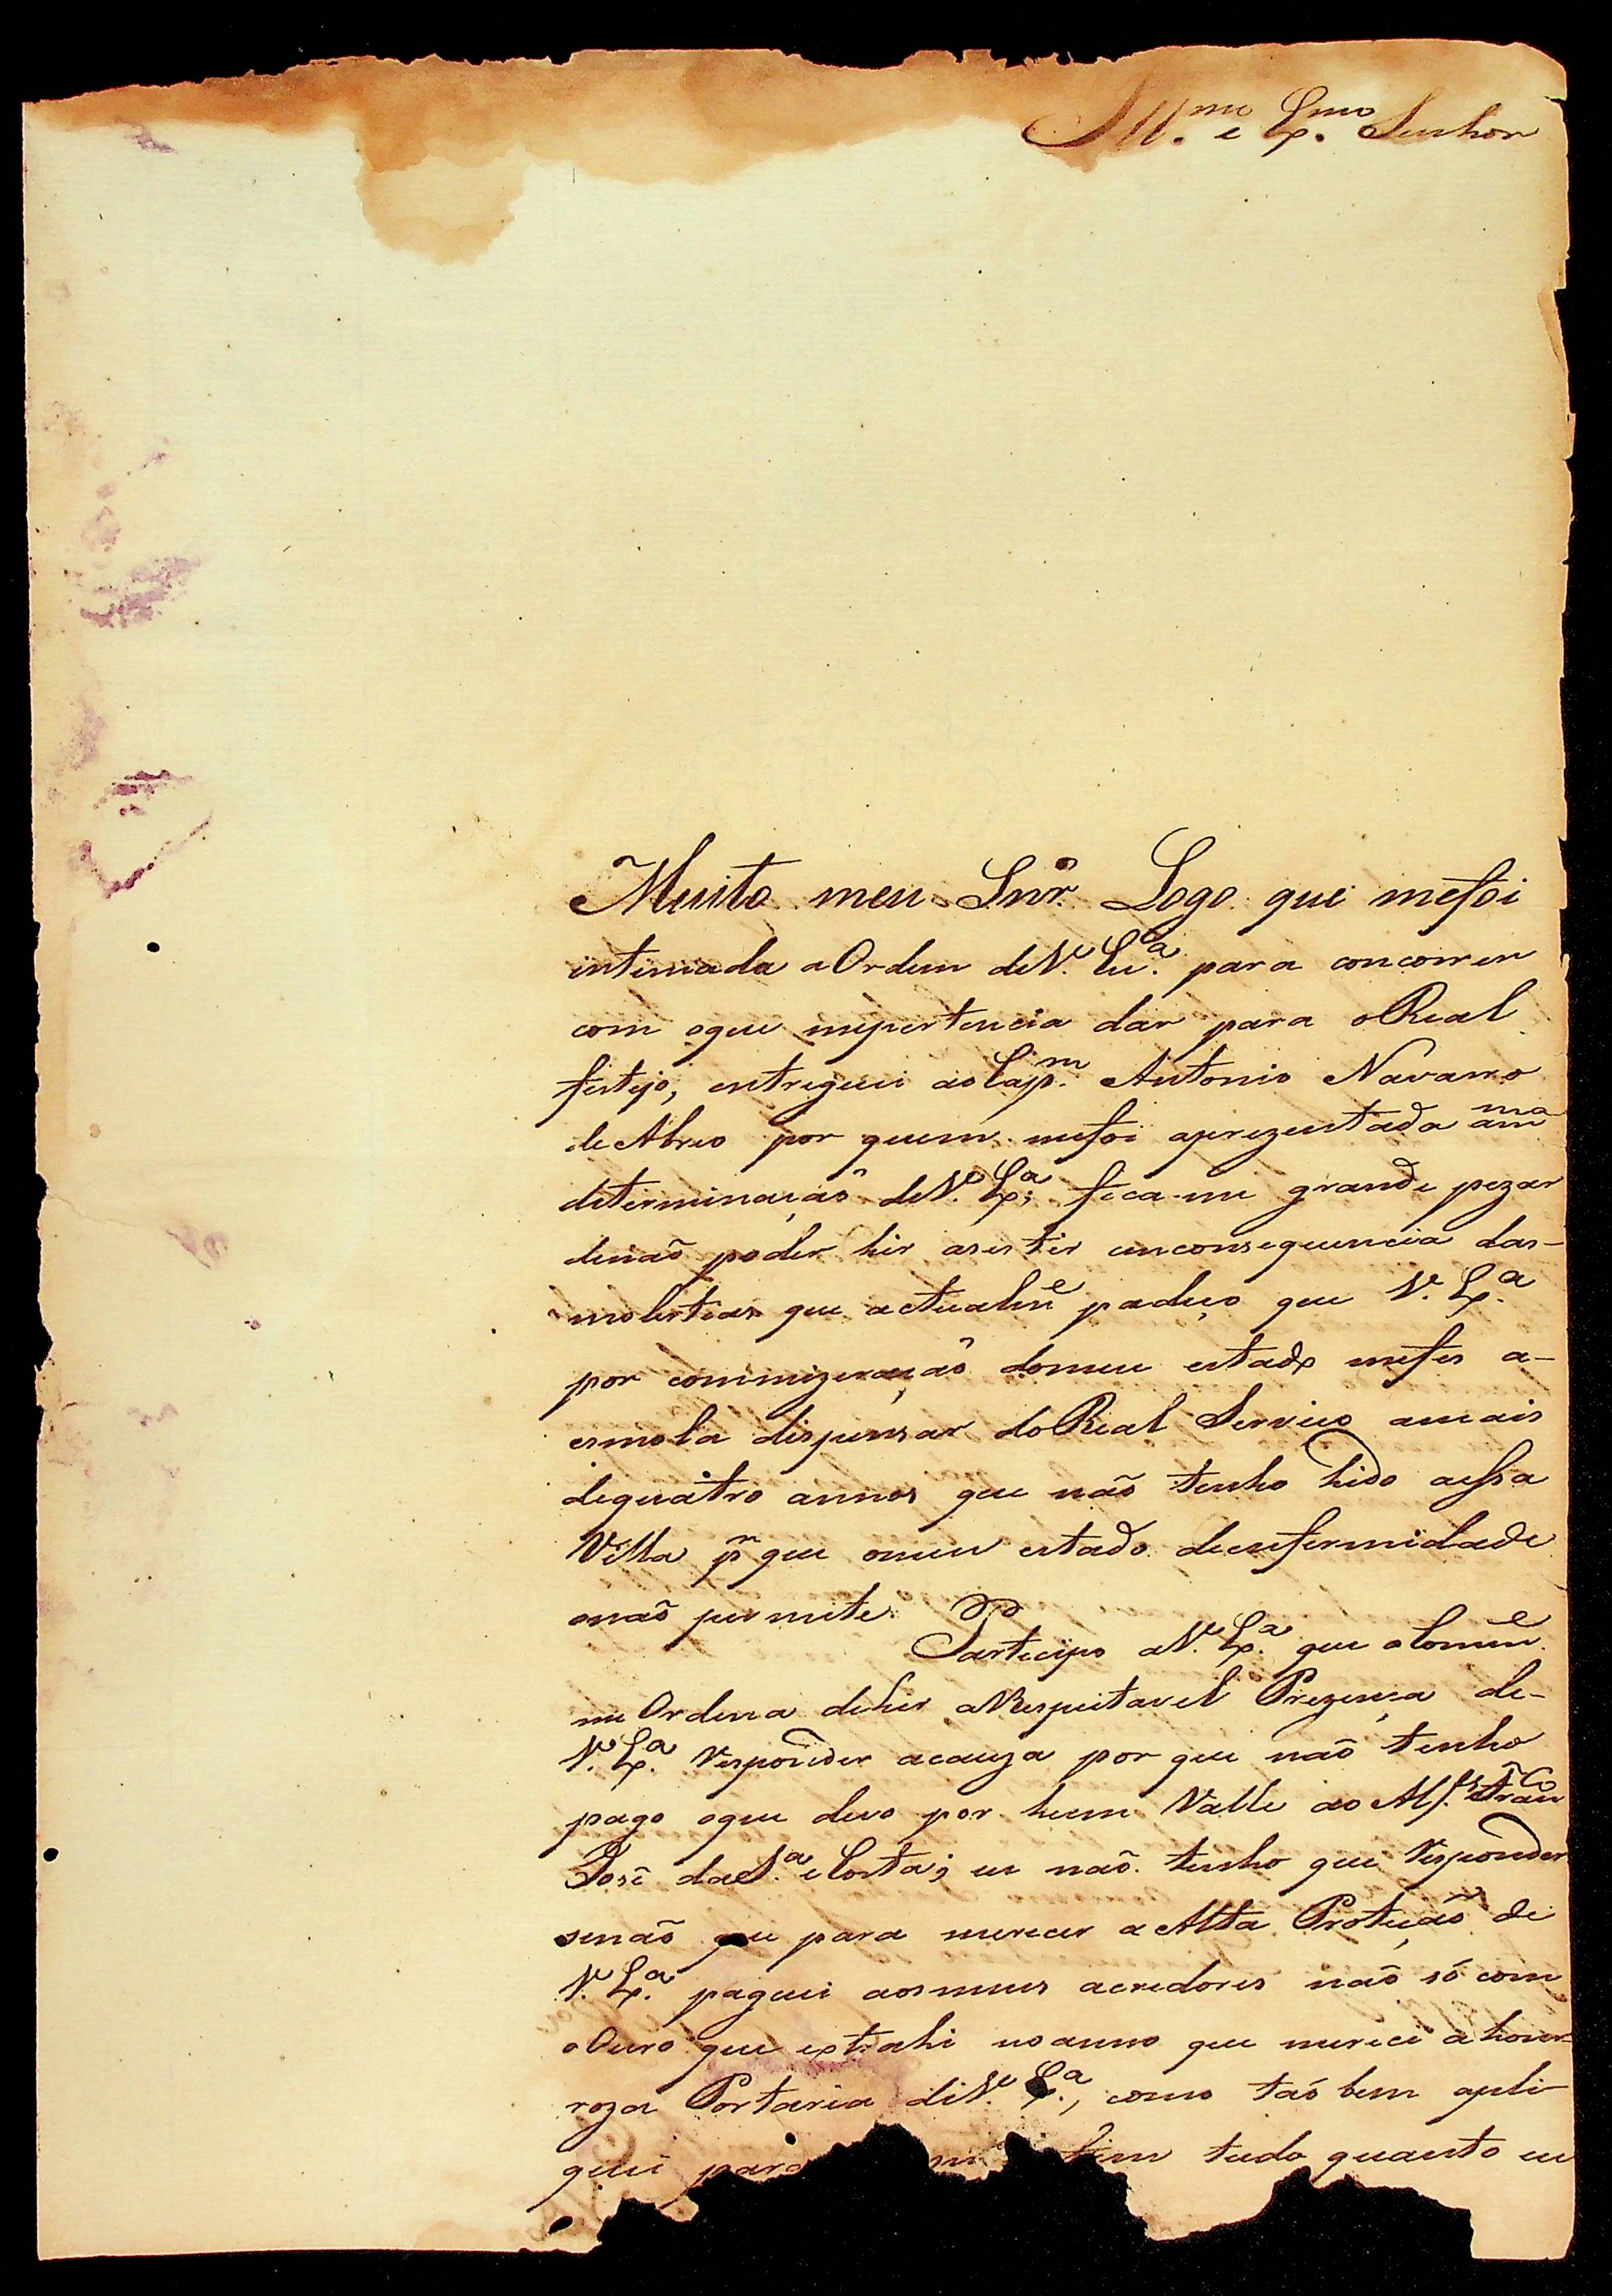 Ill.mo e Ex.mo Senhor
Muito meu Snr. Logo que mefoi
intimada a Ordem deV. Ex.a para concorrer
com oque mepertencia dar para oReal
festejo, entreguei aoCap.m Antonio Navarro
deAbreo por quem mefoi aprezentada am.ma
determinação deV. Ex.a; fica-me grande pezar
denaõ poder hir asestir emconsequencia das-
molestias que actualm.e padeço que V. Ex.a
por commizeração domeu estado mefes a-
esmola dispensar doReal Serviço amais
dequatro annos que naõ tenho hido aessa
Villa p.r que omeu estado deenfermidade
onaõ permite. Participo aV. Ex.a que oCom.e
me Ordena dehir aRespeitavel Prezença de-
V. Ex.a Responder acauza por que naõ tenho
pago oque devo por hum Valle ao Alf.es Fran.co
José daS.a eCosta; eu naõ tenho que Responder
senaõ que para merecer aAlta Proteçaõ de
V. Ex.a paguei aosmeus acredores naõ só com
oOuro que extrahi noanno que mereci ahonr-
roza Portaria deV. Ex.a, como taõ bem apli-
quei para fim tudo quanto eu